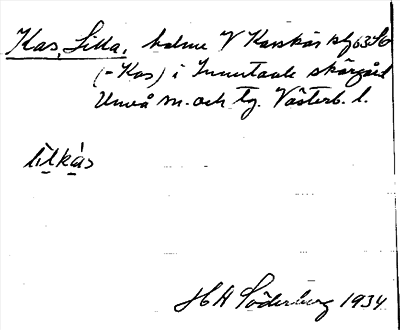 Kas, Lilla, holme V Kasskär kbl 63 So
(-Kas) i Innertavle skärgård
Umeå sn. och tg. Västerb. l.
lilkas
H A Söderberg 1934